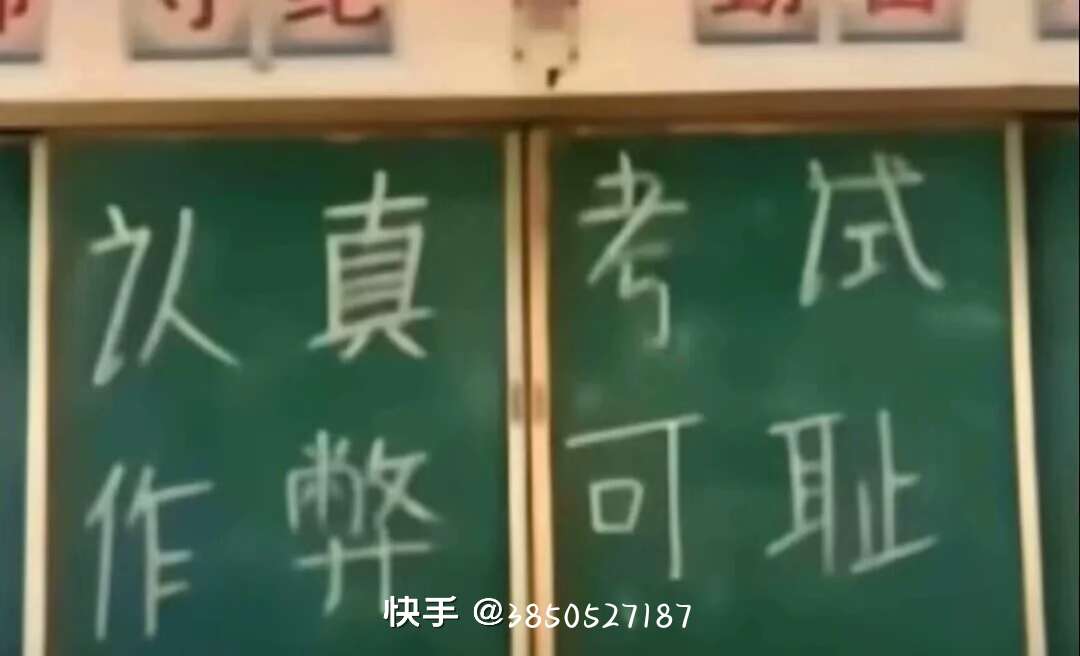 认真考试
作弊可耻
快手 @3850527187